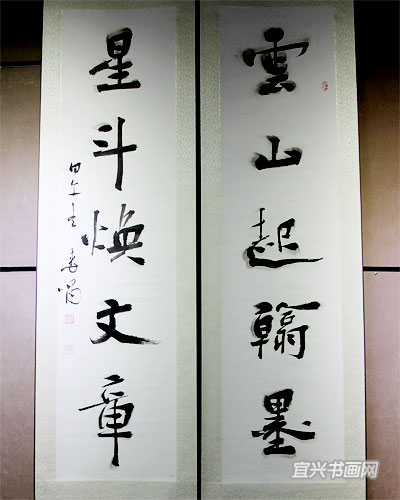 雲山起翰墨
星斗焕文章
宜兴书画网